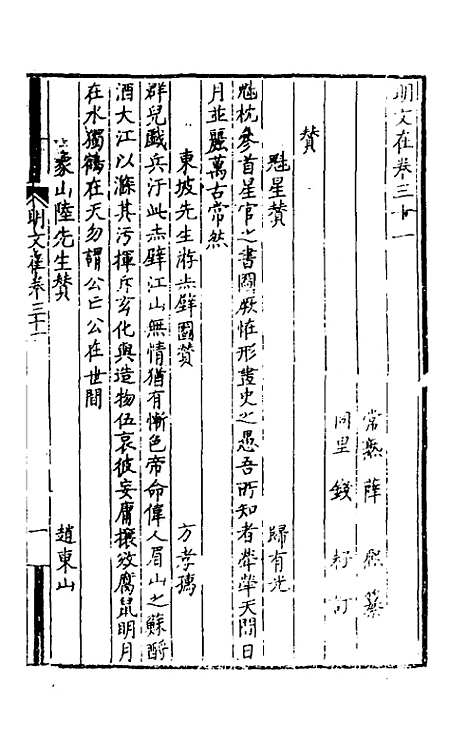 明文在卷三十一
常熟薛熙纂
同里錢 訂
贊
魁星贊 歸有光
魁枕參首星官之書圖厥恠形畫史之愚吾所知者犖犖天閶日
月並麗萬古常然
東坡先生游赤壁圖贊 方孝孺
群兒戲兵汙此赤壁江山無情猶有慚色帝命偉人眉山之蘇酹
酒大江以滌其污揮斥玄化與造物伍哀彼妄庸攘效腐鼠明月
在水獨鶴在天勿謂公亡公在世間
象山陸先生贊 趙東山
明文在卷三十一
一